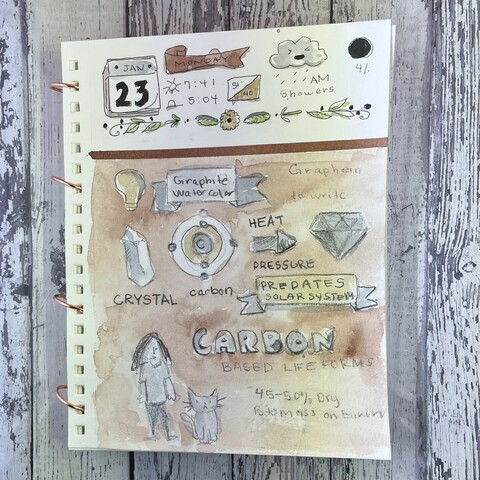 JAN
23
MONDAY
7:41
5:04
51
40
AM
Showers
4%
Graphite
Watercolor
Graphein
to write
HEAT
PRESSURE
CRYSTAL
C
carbon
PREDATES
SOLAR SYSTEM
CARBON
BASED LIFE FORMS
45-50% Dry
Biomass on Earth